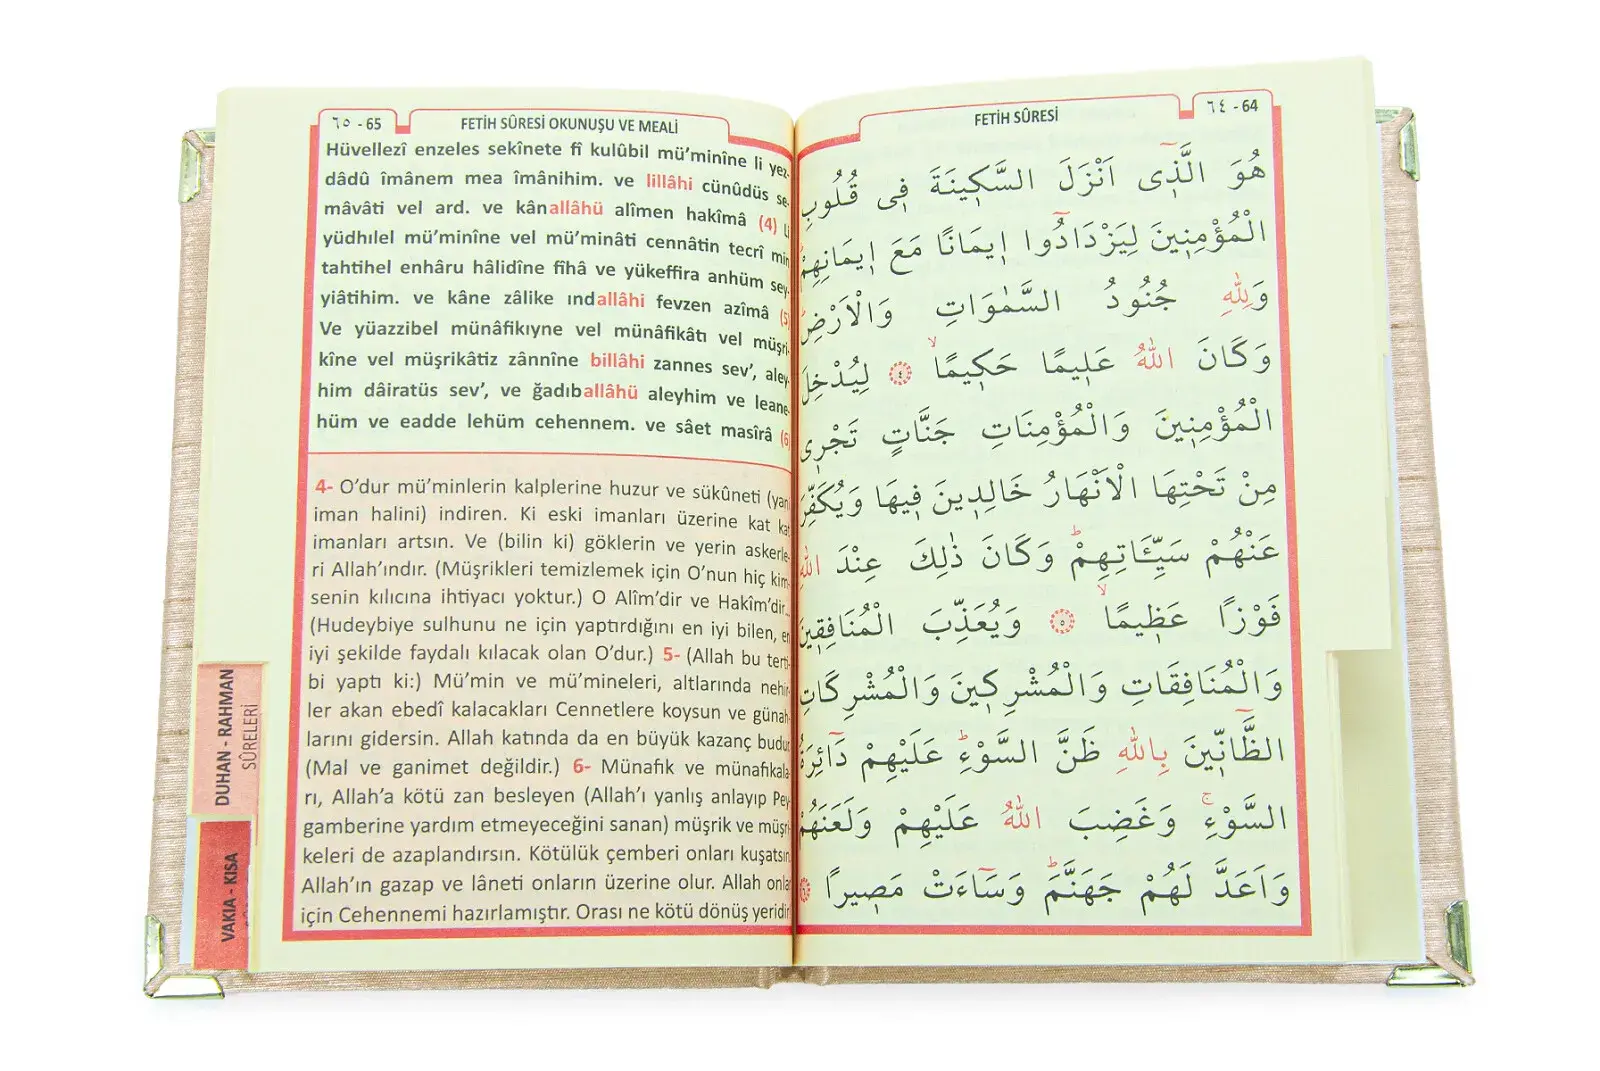 ٦٤ - 64
FETİH SÛRESİ
هُوَ الَّذ۪ٓى اَنْزَلَ السَّك۪ينَةَ ف۪ى قُلُوبِ
الْمُؤْمِن۪ينَ لِيَزْدَادُٓوا ا۪يمَانًا مَعَ ا۪يمَانِهِمْ
وَلِلّٰهِ جُنُودُ السَّمٰوَاتِ وَالْاَرْضِۜ
وَكَانَ اللّٰهُ عَل۪يمًا حَك۪يمًاۙ ﴿٤﴾ لِيُدْخِلَ
الْمُؤْمِن۪ينَ وَالْمُؤْمِنَاتِ جَنَّاتٍ تَجْر۪ى
مِنْ تَحْتِهَا الْاَنْهَارُ خَالِد۪ينَ ف۪يهَا وَيُكَفِّرَ
عَنْهُمْ سَيِّـَٔاتِهِمْۜ وَكَانَ ذٰلِكَ عِنْدَ اللّٰهِ
فَوْزًا عَظ۪يمًاۙ ﴿٥﴾ وَيُعَذِّبَ الْمُنَافِق۪ينَ
وَالْمُنَافِقَاتِ وَالْمُشْرِك۪ينَ وَالْمُشْرِكَاتِ
الظَّٓانّ۪ينَ بِاللّٰهِ ظَنَّ السَّوْءِۜ عَلَيْهِمْ دَٓائِرَةُ
السَّوْءِۚ وَغَضِبَ اللّٰهُ عَلَيْهِمْ وَلَعَنَهُمْ
وَاَعَدَّ لَهُمْ جَهَنَّمَۜ وَسَٓاءَتْ مَص۪يرًا ﴿٦﴾
٦٥ - 65
FETİH SÛRESİ OKUNUŞU VE MEALİ
Hüvellezî enzeles sekînete fî kulûbil mü’minîne li yez-
dâdû îmânem mea îmânihim. ve lillâhi cünûdüs se-
mâvâti vel ard. ve kânallâhü alîmen hakîmâ (4) Li
yüdhılel mü’minîne vel mü’minâti cennâtin tecrî min
tahtihel enhâru hâlidîne fîhâ ve yükeffira anhüm sey-
yiâtihim. ve kâne zâlike ındallâhi fevzen azîmâ (5)
Ve yüazzibel münâfikıyne vel münâfikâtı vel müşri-
kîne vel müşrikâtiz zânnîne billâhi zannes sev’, aley-
him dâiratüs sev’, ve ğadıballâhü aleyhim ve leane-
hüm ve eadde lehüm cehennem. ve sâet masîrâ (6)
4- O’dur mü’minlerin kalplerine huzur ve sükûneti (yani
iman halini) indiren. Ki eski imanları üzerine kat kat
imanları artsın. Ve (bilin ki) göklerin ve yerin askerle-
ri Allah’ındır. (Müşrikleri temizlemek için O’nun hiç kim-
senin kılıcına ihtiyacı yoktur.) O Alîm’dir ve Hakîm’dir...
(Hudeybiye sulhunu ne için yaptırdığını en iyi bilen, en
iyi şekilde faydalı kılacak olan O’dur.) 5- (Allah bu terti-
bi yaptı ki:) Mü’min ve mü’mineleri, altlarında nehir-
ler akan ebedî kalacakları Cennetlere koysun ve günah-
larını gidersin. Allah katında da en büyük kazanç budur.
(Mal ve ganimet değildir.) 6- Münafık ve münafıkala-
rı, Allah’a kötü zan besleyen (Allah’ı yanlış anlayıp Pey-
gamberine yardım etmeyeceğini sanan) müşrik ve müşri-
keleri de azaplandırsın. Kötülük çemberi onları kuşatsın.
Allah’ın gazap ve lâneti onların üzerine olur. Allah onlar
için Cehennemi hazırlamıştır. Orası ne kötü dönüş yeridir!
DUHAN - RAHMAN
SÛRELERİ
VAKIA - KISA